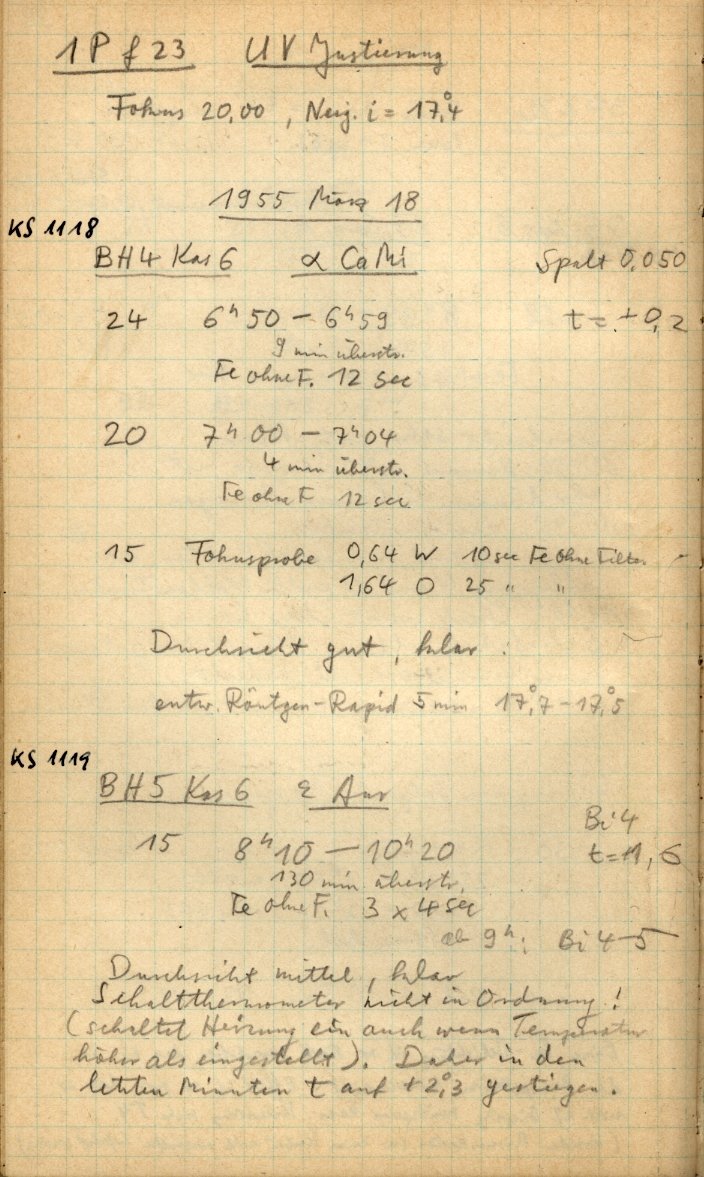 1 P f 23 UV Justierung
Fokus 20,00 , Neig. i = 17°,4
1955 März 18
KS 1118
BH4 Kas 6 α CaMi Spalt 0,050
24 6ʰ50 – 6ʰ59 t = +0,2
9 min überstr.
Fe ohne F. 12 sec
20 7ʰ00 – 7ʰ04
4 min überstr.
Fe ohne F 12 sec
15 Fokusprobe 0,64 W 10 sec Fe ohne Filter
1,64 O 25 " "
Durchsicht gut, klar
entw. Röntgen-Rapid 5 min 17°,7 – 17°,5
KS 1119
BH5 Kas 6 ε Aur
Bi 4
15 8ʰ10 – 10ʰ20 t = +1,6
130 min überstr.
Fe ohne F. 3 x 4 sec
ab 9ʰ: Bi 4–5
Durchsicht mittel, klar
Schaltthermometer nicht in Ordnung!
(schaltet Heizung ein auch wenn Temperatur
höher als eingestellt). Daher in den
letzten Minuten t auf +2°,3 gestiegen.